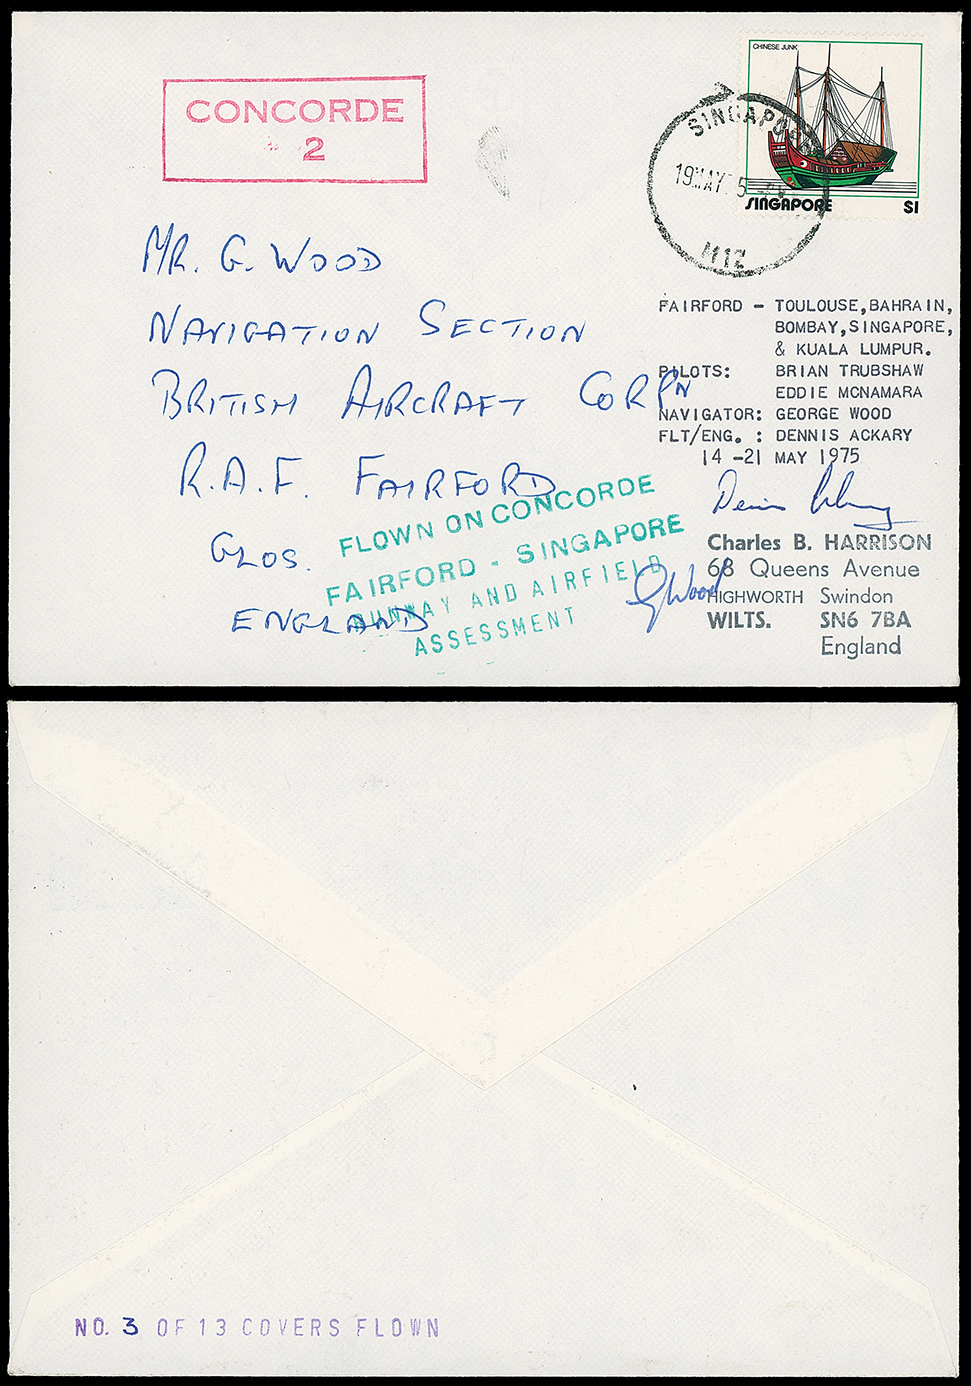 CONCORDE
2
CHINESE JUNK
SINGAPORE $1
SINGAPORE
19 MAY
MR. G. WOOD
NAVIGATION SECTION
BRITISH AIRCRAFT CORPN
R.A.F. FAIRFORD
GLOS.
ENGLAND
FAIRFORD - TOULOUSE, BAHRAIN,
BOMBAY, SINGAPORE,
& KUALA LUMPUR.
PILOTS: BRIAN TRUBSHAW
EDDIE MCNAMARA
NAVIGATOR: GEORGE WOOD
FLT/ENG. : DENNIS ACKARY
14 -21 MAY 1975
FLOWN ON CONCORDE
FAIRFORD - SINGAPORE
RUNWAY AND AIRFIELD
ASSESSMENT
G Wood
Charles B. HARRISON
68 Queens Avenue
HIGHWORTH Swindon
WILTS. SN6 7BA
England
NO. 3 OF 13 COVERS FLOWN